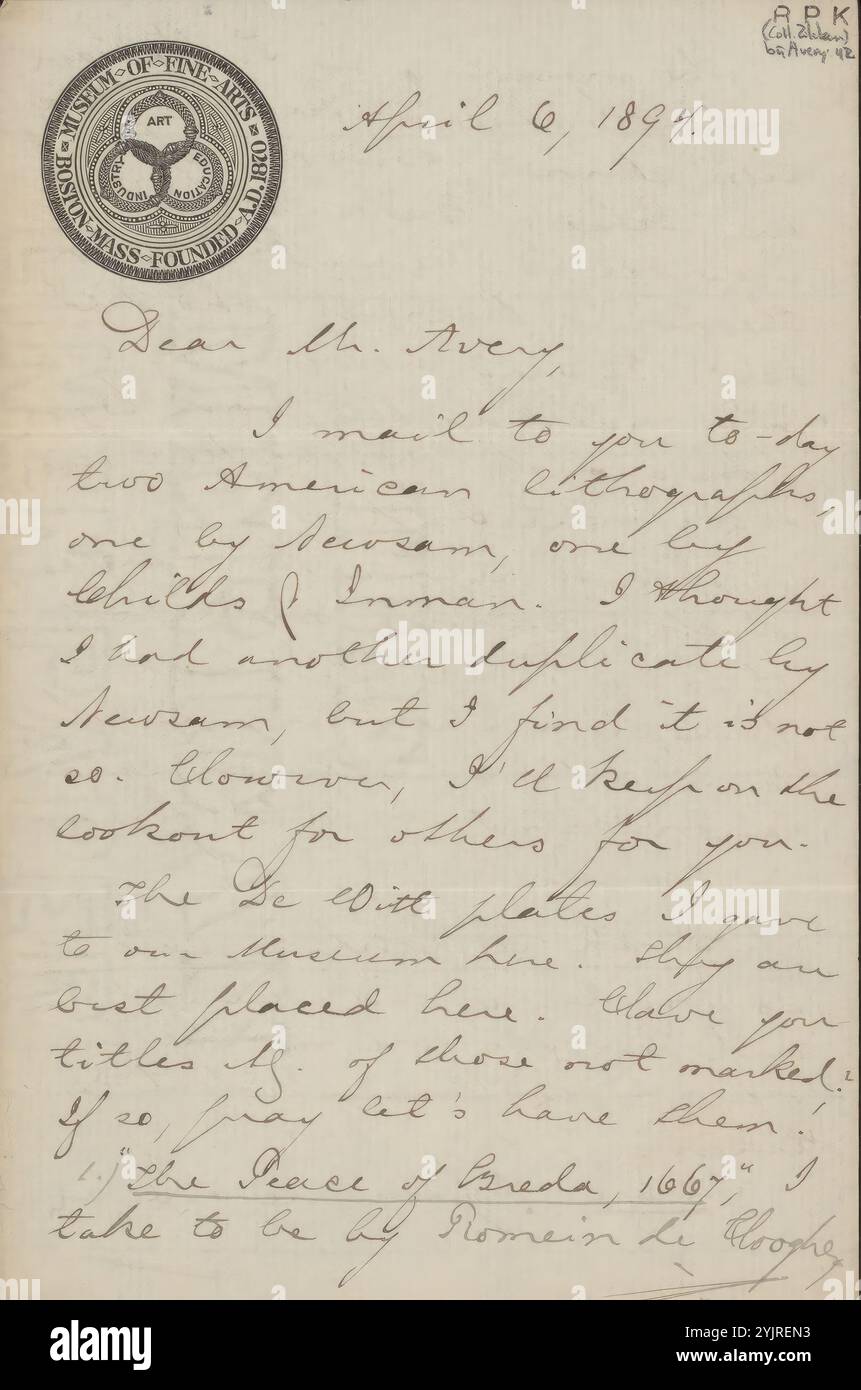 R P K
(Coll. Zilcken)
bij Avery 42
MUSEUM OF FINE ARTS
BOSTON MASS FOUNDED A.D. 1870
ART
INDUSTRY
EDUCATION
April 6, 1894.
Dear Mr. Avery,
I mail to you to-day
two American lithographs,
one by Newsam, one by
Childs & Inman. I thought
I had another duplicate by
Newsam, but I find it is not
so. However, I'll keep on the
lookout for others for you.
The De Witt plates I gave
to our Museum here. They are
best placed here. Have you
titles &c. of those not marked?
If so, pray let's have them!
1.) "The Peace of Breda, 1667," I
take to be by Romein de Hooghe
alamy
Image ID: 2YJREN3
www.alamy.com